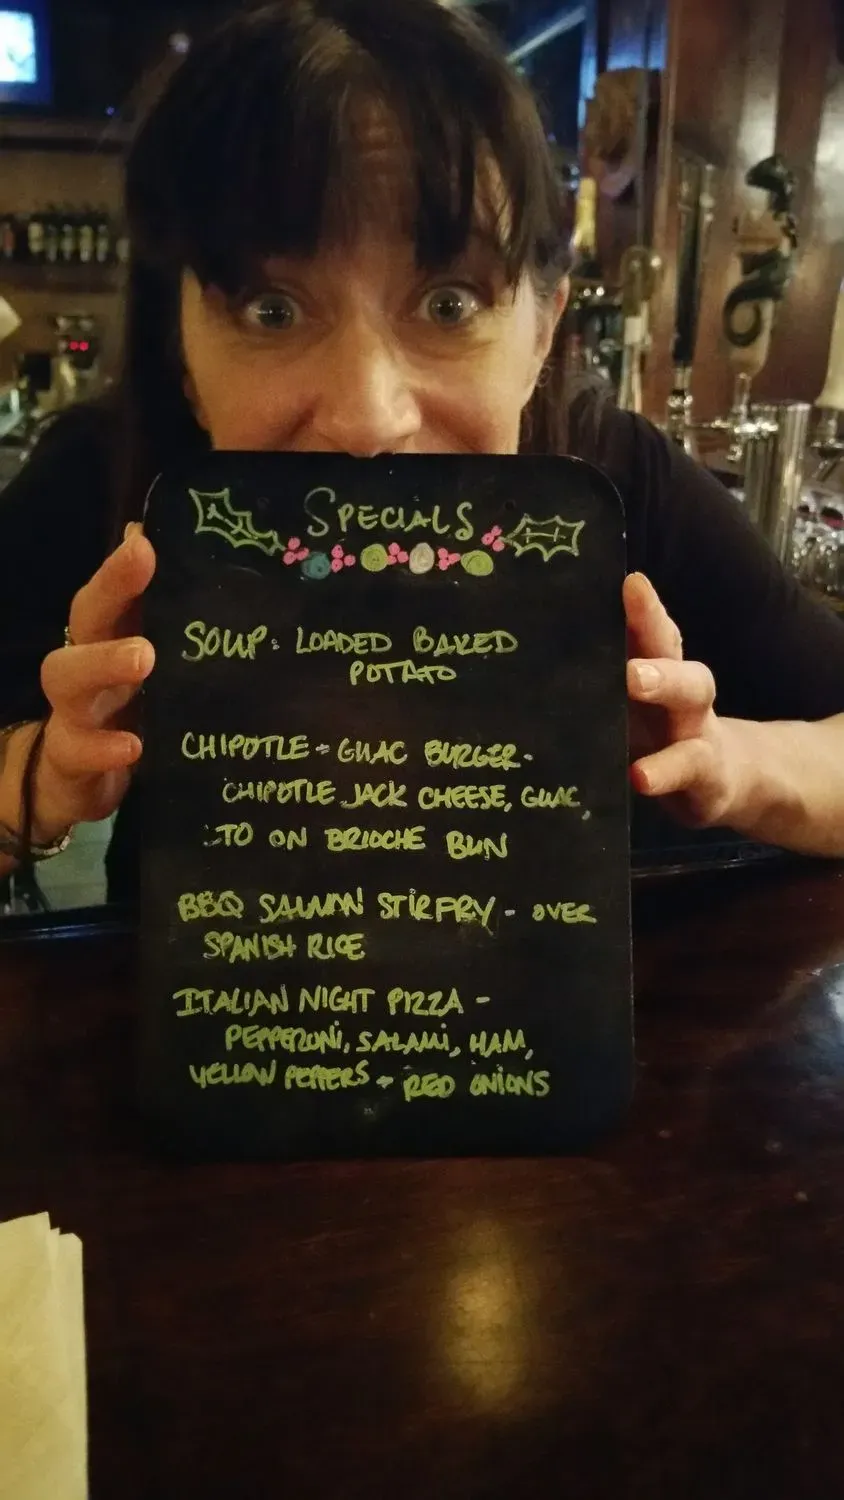 SPECIALS
SOUP: LOADED BAKED
POTATO
CHIPOTLE - GUAC BURGER -
CHIPOTLE JACK CHEESE, GUAC,
LTO ON BRIOCHE BUN
BBQ SALMON STIR FRY - OVER
SPANISH RICE
ITALIAN NIGHT PIZZA -
PEPPERONI, SALAMI, HAM,
YELLOW PEPPERS + RED ONIONS